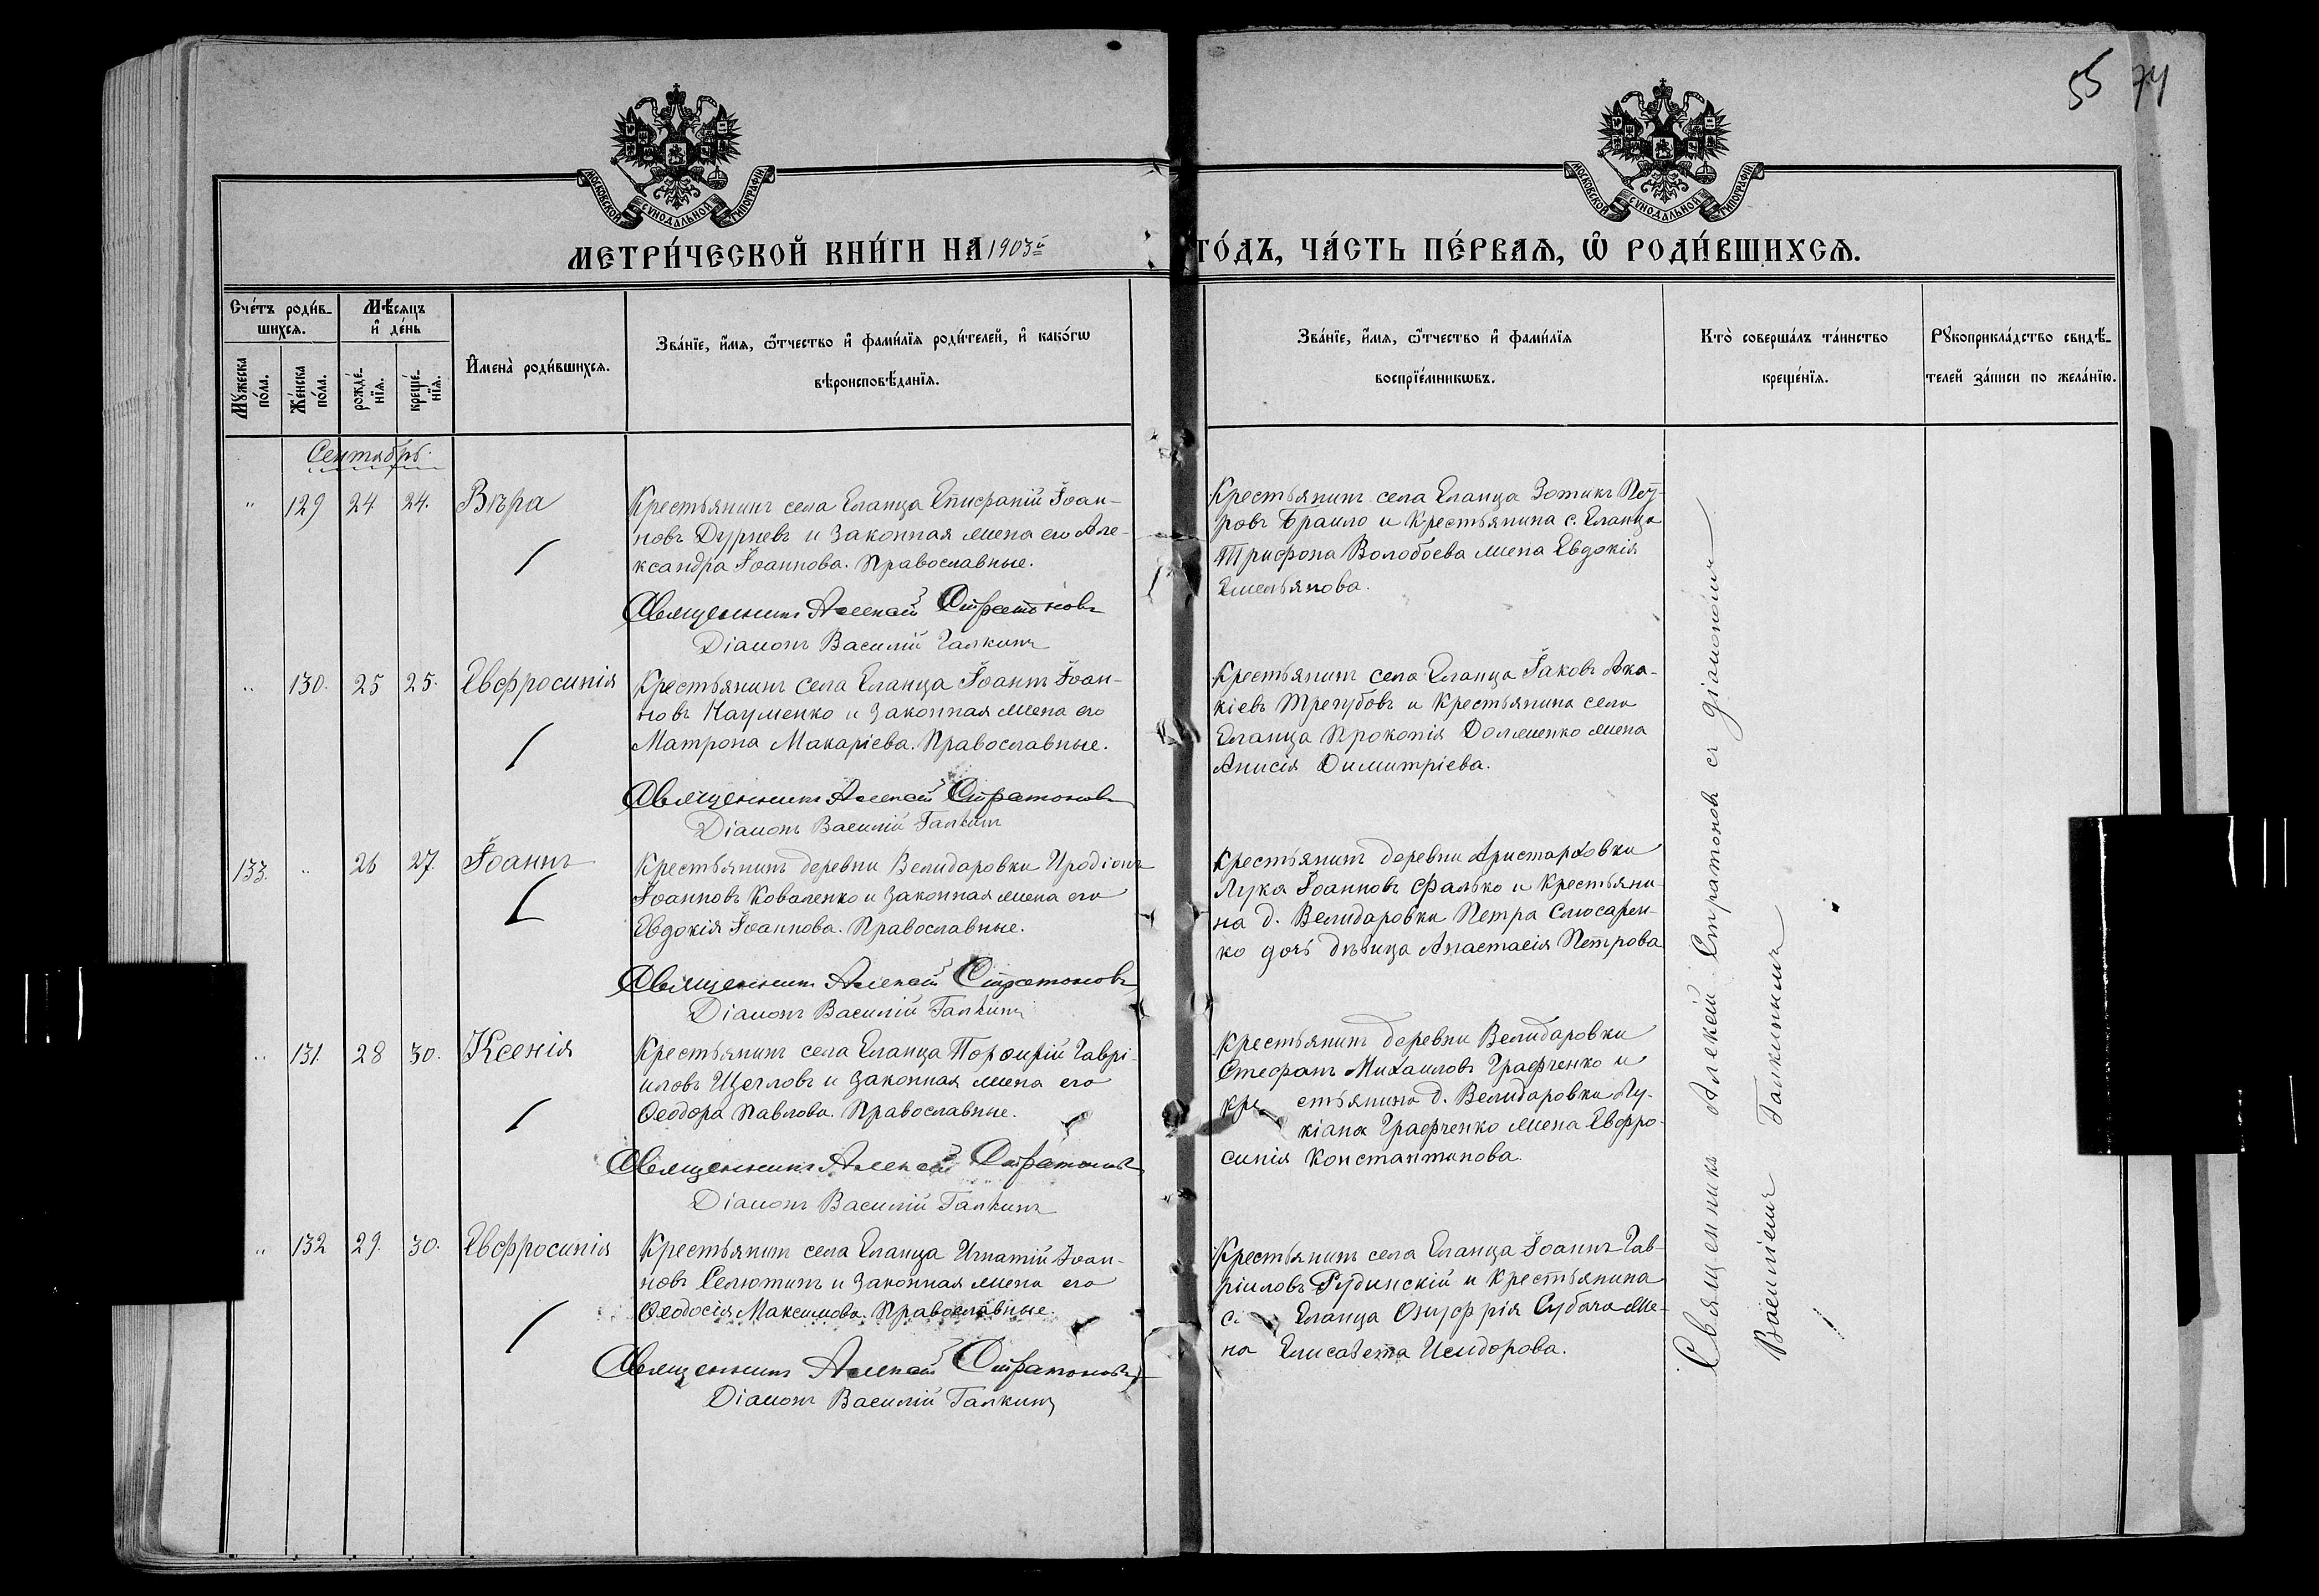 55 74
МОСКОВСКОЙ СѴНОДАЛЬНОЙ ТИПОГРАФІИ
МОСКОВСКОЙ СѴНОДАЛЬНОЙ ТИПОГРАФІИ
МЕТРИ́ЧЕСКОЙ КНИ́ГИ НА 1903й
ГО́ДЪ, ЧА́СТЬ ПЕ́РВАѦ, Ѡ҆ РОДИ́ВШИХСѦ.
Сче́тъ роди́в-
шихсѧ.
Мꙋ́жеска по́ла.
Же́нска по́ла.
Мѣ́сѧцъ
и҆ де́нь
рожде́-
нїѧ.
креще́-
нїѧ.
И҆мена̀ роди́вшихсѧ.
Зва́нїе, и҆́мѧ, ѻ҆́тчество и҆ фами́лїѧ роди́телей, и҆ како́гѡ
вѣроисповѣ́данїѧ.
Зва́нїе, и҆́мѧ, ѻ҆́тчество и҆ фами́лїѧ
воспрїе́мникѡвъ.
Кто̀ соверша́лъ та́инство
креще́нїѧ.
Рꙋкоприкла́дство свидѣ́-
телей за́писи по жела́нїю.
Сентябрь.
" 129 24 24. Вѣра
Крестьянинъ села Еланца Епифаній Іоан-
новъ Дурневъ и законная жена его Але-
ксандра Іоаннова. Православные.
Священникъ Алексѣй Стратоновъ
Діаконъ Василій Галкинъ
Крестьянинъ села Еланца Зотикъ Пет-
ровъ Браило и Крестьянина с. Еланца
Трифона Волобоева жена Евдокія
Емельянова.
" 130. 25 25. Евфросинія
Крестьянинъ села Еланца Іоаннъ Іоан-
новъ Науменко и законная жена его
Матрона Макаріева. Православные.
Священникъ Алексѣй Стратоновъ
Діаконъ Василій Галкинъ
Крестьянинъ села Еланца Іаковъ Ака-
кіевъ Трегубовъ и Крестьянина села
Еланца Прокопія Долженко жена
Анисія Димитріева.
133. " 26 27. Іоаннъ
Крестьянинъ деревни Велидаровки Иродіонъ
Іоанновъ Коваленко и законная жена его
Евдокія Іоаннова. Православные.
Священникъ Алексѣй Стратоновъ
Діаконъ Василій Галкинъ
Крестьянинъ деревни Аристарховки
Лука Іоанновъ Фалько и Крестьяни-
на д. Велидаровки Петра Слюсарен-
ко дочь дѣвица Анастасія Петрова
" 131. 28 30. Ксенія
Крестьянинъ села Еланца Порфирій Гаврі-
иловъ Щегловъ и законная жена его
Ѳеодора Павлова. Православные.
Священникъ Алексѣй Стратоновъ
Діаконъ Василій Галкинъ
Крестьянинъ деревни Велидаровки
Стефанъ Михаиловъ Графченко и
кре стьянина д. Велидаровки Лу-
кіана Графченко жена Евфро-
синія Константинова.
" 132 29. 30. Евфросинія
Крестьянинъ села Еланца Игнатій Іоан-
новъ Селютинъ и законная жена его
Ѳеодосія Максимова. Православные.
Священникъ Алексѣй Стратоновъ
Діаконъ Василій Галкинъ
Крестьянинъ села Еланца Іоаннъ Гав-
ріиловъ Рудинскій и Крестьянина
с. Еланца Онуфрія Субача же-
на Елисавета Исидорова.
Священникъ Алексѣй Стратоновъ съ діакономъ
Василіемъ Галкинымъ